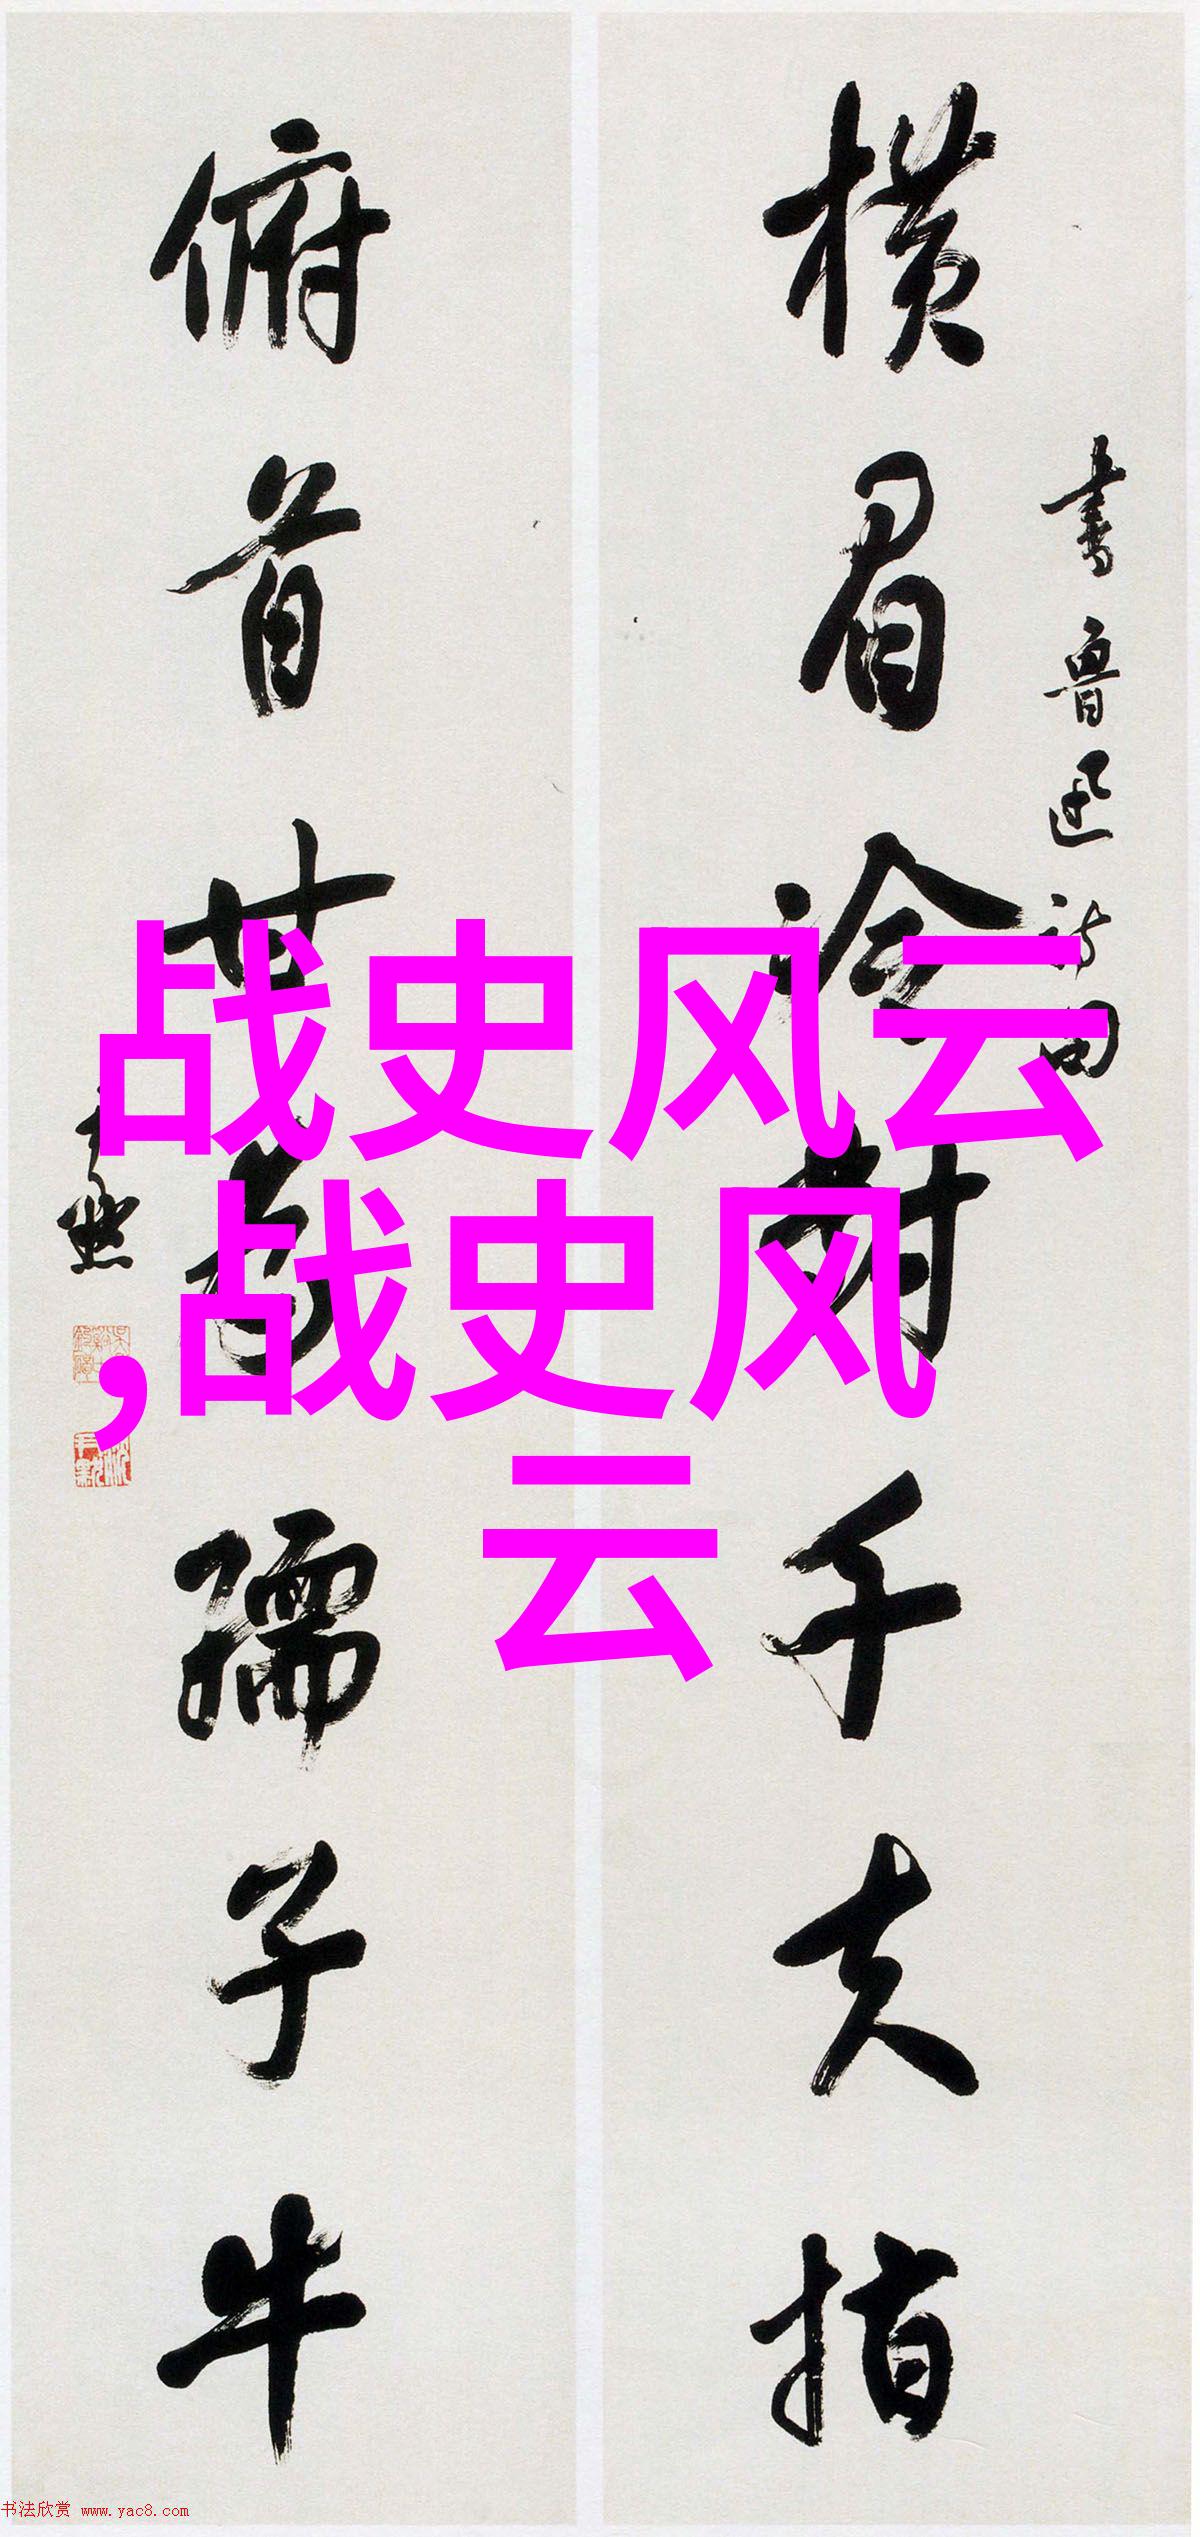 横眉冷對千夫指
書魯迅詩句
俯首甘為孺子牛
尹默
战史风云
,战史风
云
书法欣赏 www.yac8.com